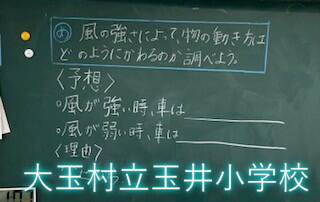 め 風の強さによって、物の動き方は
どのようにかわるのか調べよう。
〈予想〉
○風が強い時、車は
○風が弱い時、車は
〈理由〉
大玉村立玉井小学校